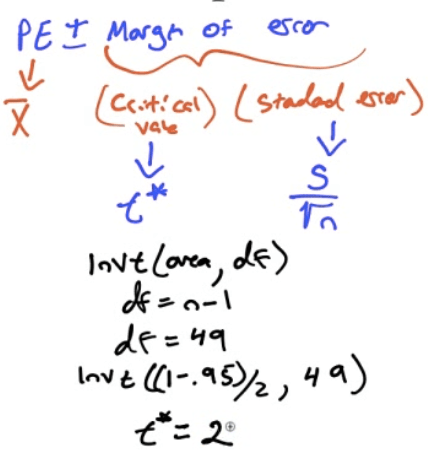 PE ± Margin of error
X̄ (Critical value) (Stadad error)
t* S/√n
Invt(area, df)
df = n-1
df = 49
Invt((1-.95)/2, 49)
t* = 2